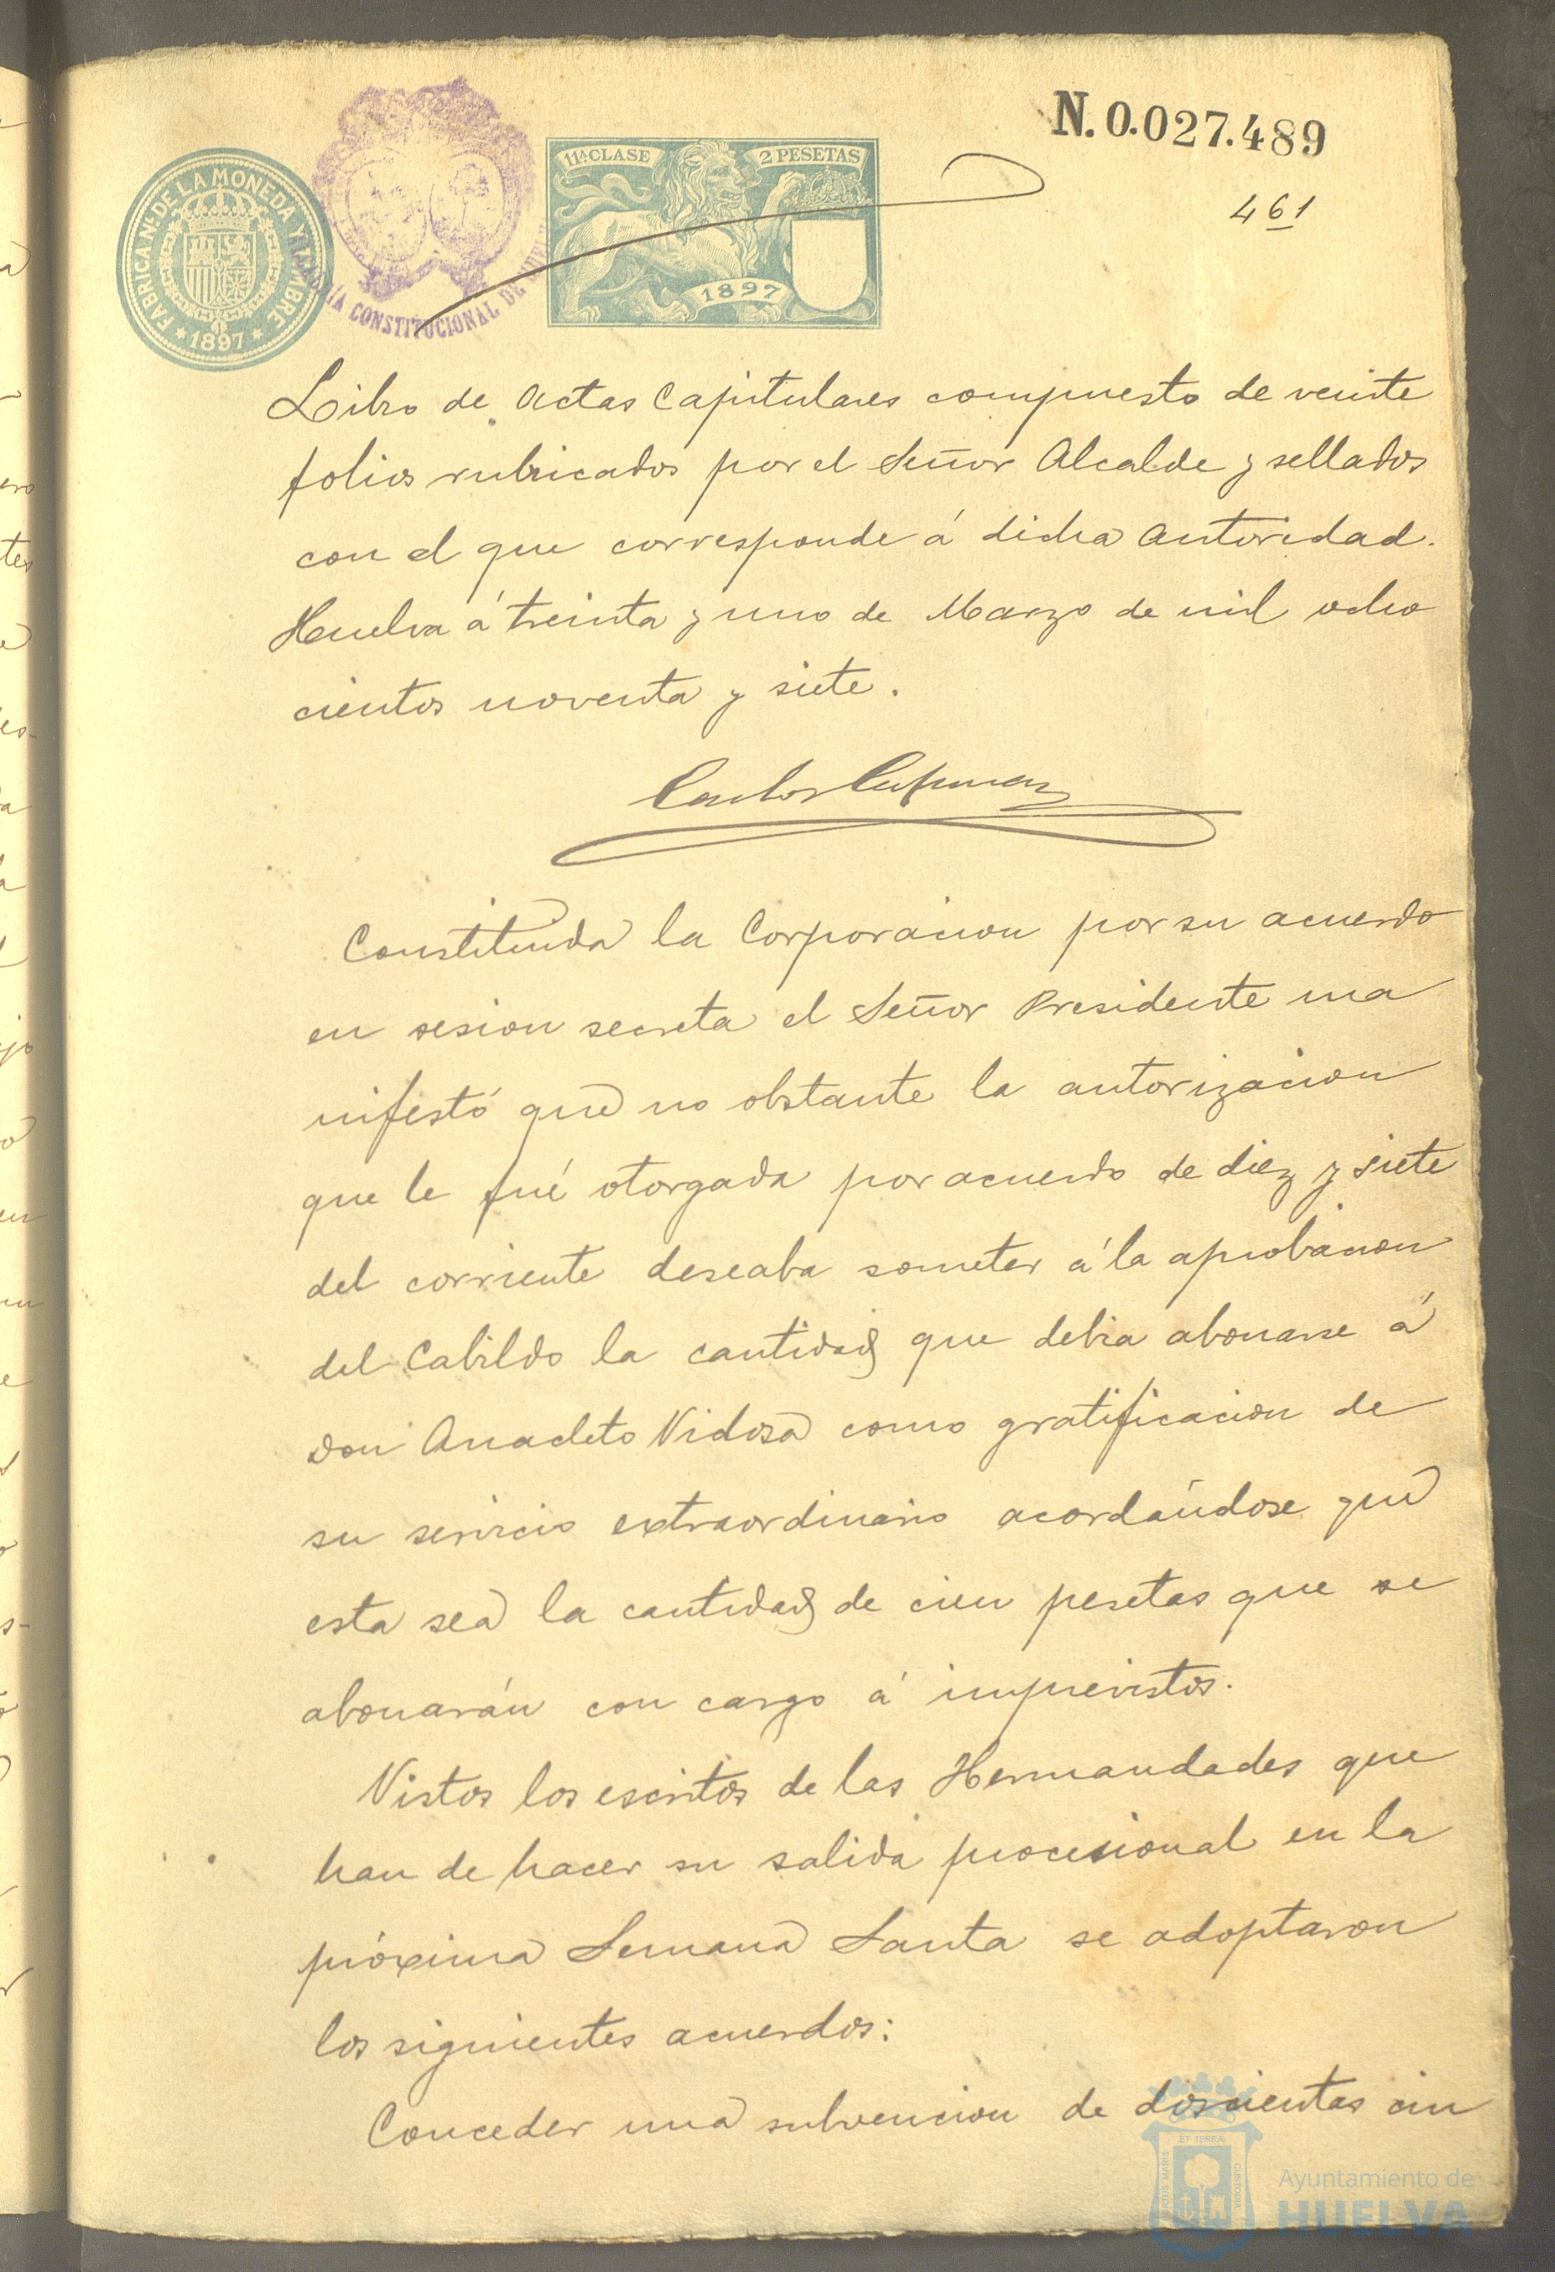 N. 0.027.489
461
FABRICA NL. DE LA MONEDA Y TIMBRE
1897
ALCALDÍA CONSTITUCIONAL DE HUELVA
11ª CLASE 2 PESETAS
1897
Libro de Actas Capitulares compuesto de veinte
folios rubricados por el Señor Alcalde y sellados
con el que corresponde á dicha autoridad.
Huelva á treinta y uno de Marzo de mil ocho
cientos noventa y siete.
Carlos
Constituida la Corporacion por su acuerdo
en sesion secreta el Señor Presidente ma
nifestó que no obstante la autorizacion
que le fué otorgada por acuerdo de diez y siete
del corriente deseaba someter á la aprobacion
del Cabildo la cantidad que debia abonarse á
Don Anacleto Vidosa como gratificacion de
su servicio extraordinario acordándose que
esta sea la cantidad de cien pesetas que se
abonarán con cargo á imprevistos.
Vistos los escritos de las Hermandades que
han de hacer su salida procesional en la
próxima Semana Santa se adoptaron
los siguientes acuerdos:
Conceder una subvencion de doscientas cin
ET TERRA
PORTUS MARIS
CUSTODIA
Ayuntamiento de
HUELVA